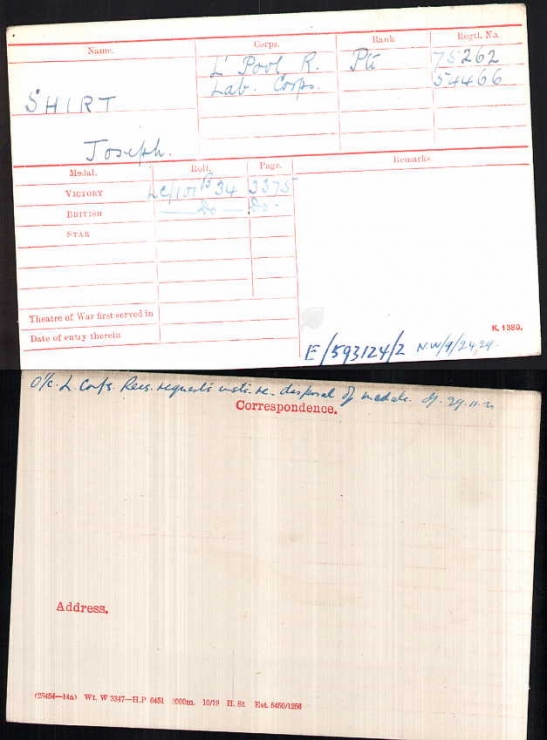 Name. Corps. Rank Regtl. No.
SHIRT L'Pool R. Pte 75262
Lab. Corps. 54466
Joseph.
Medal. Roll. Page. Remarks
VICTORY LC/101 B 34 3375
BRITISH — Do — Do.
STAR
Theatre of War first served in
Date of entry therein
K. 1380.
E/593124/2 NW/9/24,29.
O/c. L. Corps. Recs. requests instr. re. disposal of medals. 29.11.2
Correspondence.
Address.
(25454—14a) Wt. W 3347—H.P 6451 3000m. 10/19 H. St Est. 5450/1256